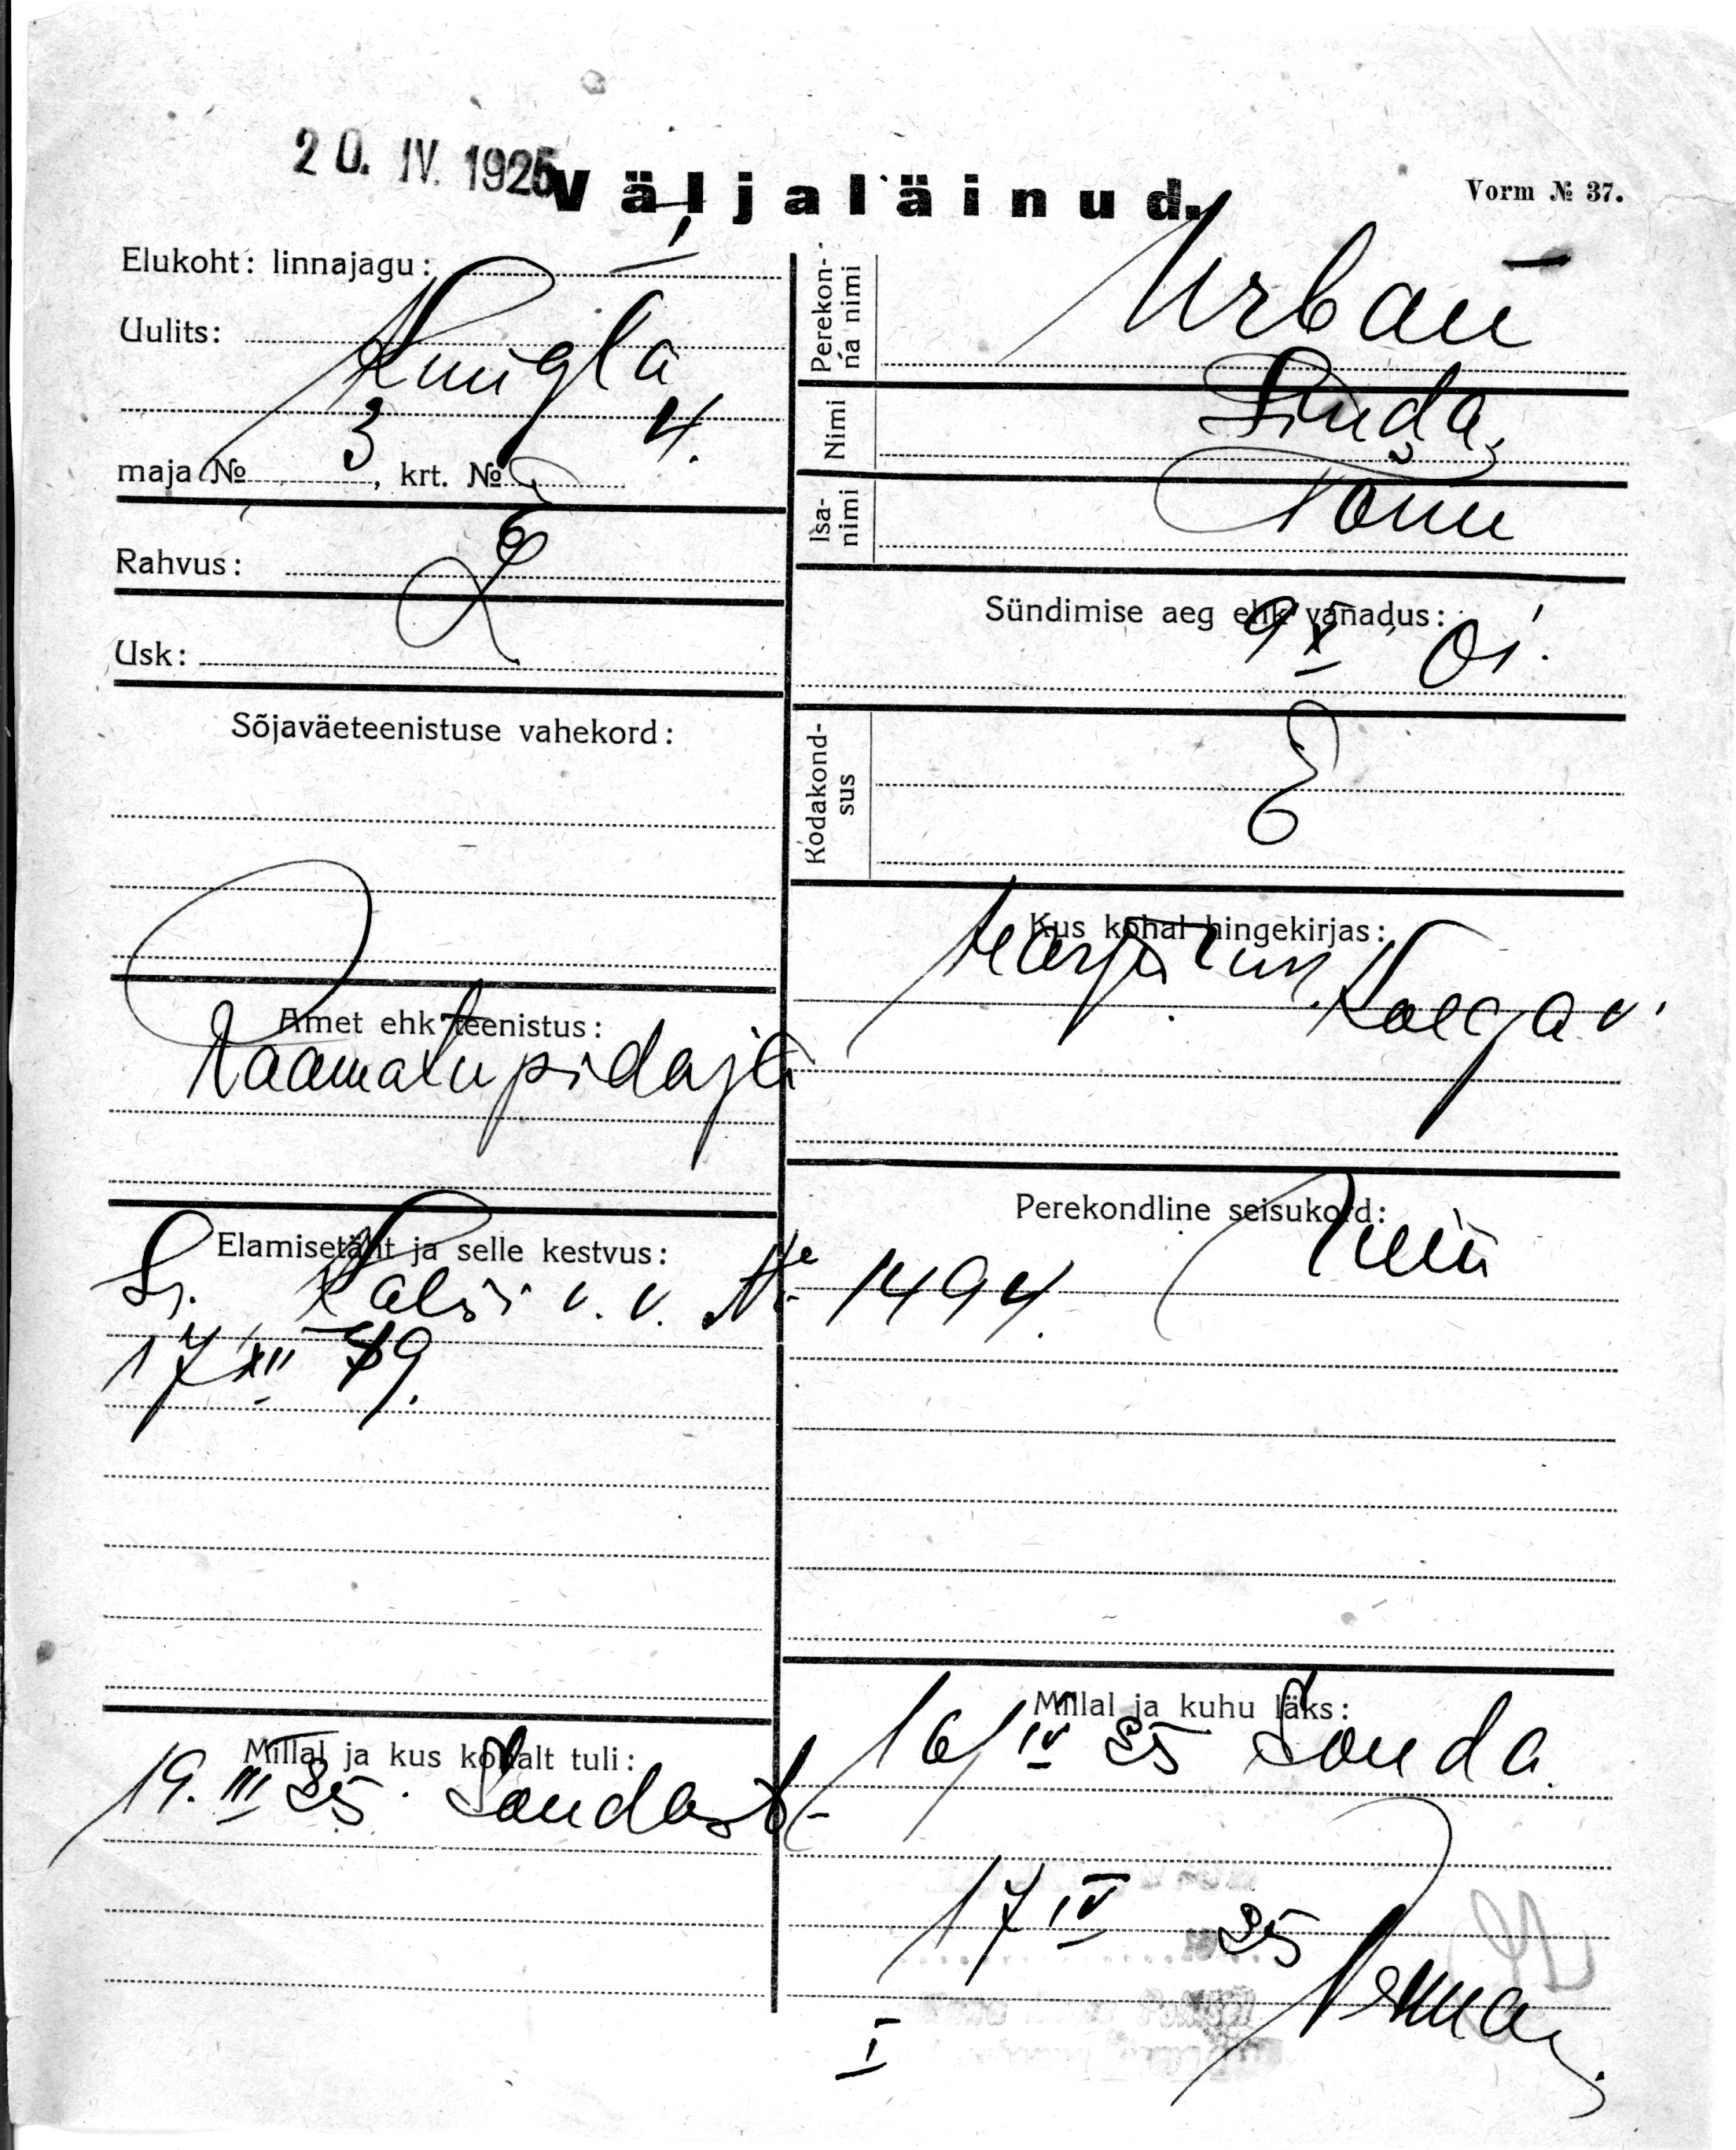 20. IV. 1925
Väljaläinud.
Vorm № 37.
Elukoht: linnajagu: I
Uulits: Kungla
maja № 3, krt. № 4.
Rahvus: E
Usk: L
Sõjaväeteenistuse vahekord:
Amet ehk teenistus:
Raamatupidaja
Elamisetäht ja selle kestvus:
v. v. № 1494.
17 XII 19.
Millal ja kus kohalt tuli:
19. III 25. Sondast
Perekonna nimi
Urban
Nimi
Linda,
Isanimi
Tõnu
Sündimise aeg ehk vanadus:
9 X 01.
Kodakondsus
E
Kus kohal hingekirjas:
Harju
Perekondline seisukord:
Millal ja kuhu läks:
16/IV 25 Sonda.
17 IV 25
I